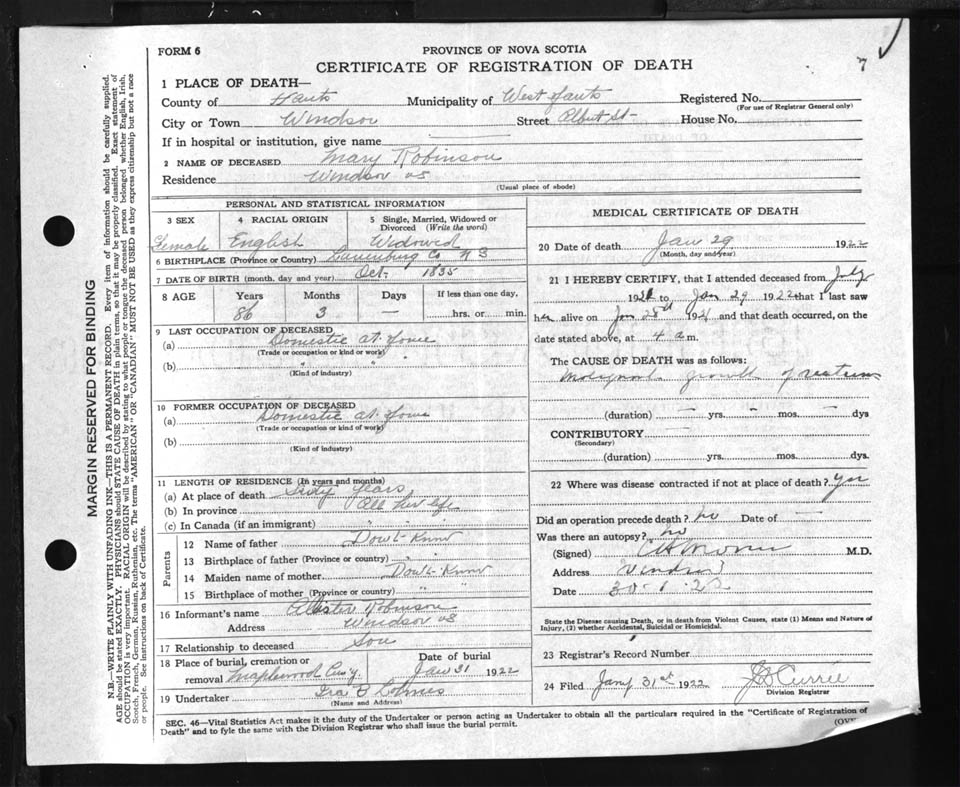 7
FORM 6
PROVINCE OF NOVA SCOTIA
CERTIFICATE OF REGISTRATION OF DEATH
1 PLACE OF DEATH—
County of Hants Municipality of West Hants Registered No.
(For use of Registrar General only)
City or Town Windsor Street Albert St- House No.
If in hospital or institution, give name
2 NAME OF DECEASED Mary Robinson
Residence Windsor NS
(Usual place of abode)
PERSONAL AND STATISTICAL INFORMATION
3 SEX
Female
4 RACIAL ORIGIN
English
5 Single, Married, Widowed or Divorced (Write the word)
Widowed
6 BIRTHPLACE (Province or Country) Lunenburg Co N S
7 DATE OF BIRTH (month, day and year) Oct- 1835
8 AGE Years Months Days If less than one day,
86 3 — hrs. or min.
9 LAST OCCUPATION OF DECEASED
(a) Domestic at Home
(Trade or occupation or kind or work)
(b) " "
(Kind of industry)
10 FORMER OCCUPATION OF DECEASED
(a) Domestic at Home
(Trade or occupation or kind of work)
(b)
(Kind of industry)
11 LENGTH OF RESIDENCE (In years and months)
(a) At place of death years
(b) In province All her life
(c) In Canada (if an immigrant) " " "
Parents
12 Name of father Don't Know
13 Birthplace of father (Province or country) " "
14 Maiden name of mother Don't Know
15 Birthplace of mother (Province or country) " "
16 Informant's name Robinson
Address Windsor NS
17 Relationship to deceased Son
18 Place of burial, cremation or removal Maplewood Cem'y
Date of burial
Jan 31 1922
19 Undertaker Ira
(Name and Address)
MEDICAL CERTIFICATE OF DEATH
20 Date of death Jan 29 1922
(Month, day and year)
21 I HEREBY CERTIFY, that I attended deceased from July
1921 to Jan 29 1922 that I last saw
her alive on Jan 28th 1921 and that death occurred, on the
date stated above, at 4 a m.
The CAUSE OF DEATH was as follows:
Malignant growth of rectum
(duration) — yrs. — mos. — dys
CONTRIBUTORY
(Secondary)
(duration) yrs. mos. dys.
22 Where was disease contracted if not at place of death? yes
Did an operation precede death? no Date of —
Was there an autopsy? no
(Signed) M.D.
Address Windsor
Date 30-1-22
State the Disease causing Death, or in death from Violent Causes, state (1) Means and Nature of
Injury, (2) whether Accidental, Suicidal or Homicidal.
23 Registrar's Record Number
24 Filed Jany 31st 1922 Currie
Division Registrar
SEC. 46—Vital Statistics Act makes it the duty of the Undertaker or person acting as Undertaker to obtain all the particulars required in the "Certificate of Registration of
Death" and to fyle the same with the Division Registrar who shall issue the burial permit.
(OV
MARGIN RESERVED FOR BINDING
N.B.—WRITE PLAINLY WITH UNFADING INK—THIS IS A PERMANENT RECORD. Every item of information should be carefully supplied.
AGE should be stated EXACTLY. PHYSICIANS should STATE CAUSE OF DEATH in plain terms, so that it may be properly classified. Exact statement of
OCCUPATION is very important. RACIAL ORIGIN will be described by stating to what people or tongue the deceased person belonged whether English, Irish,
Scotch, French, German, Russian, Ruthenian, etc. The terms "AMERICAN" OR "CANADIAN" MUST NOT BE USED as they express citizenship but not a race
or people. See instructions on back of Certificate.